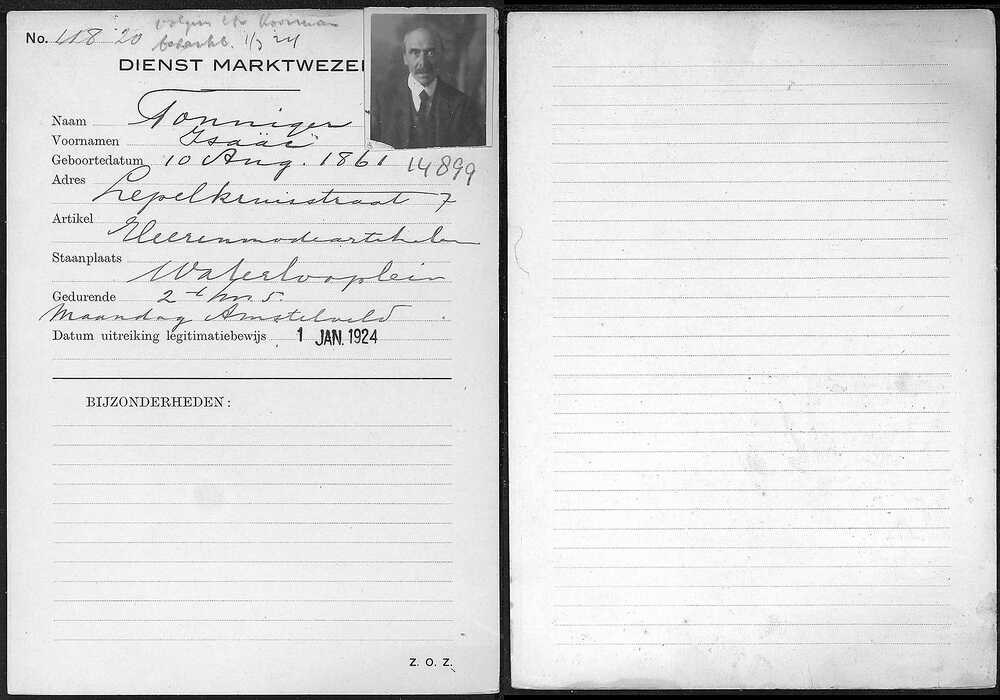 No. 118 20
volgens Hr Koorman
bedankt. 1/3 24
DIENST MARKTWEZE
Naam Tonniger
Voornamen Isaäc
Geboortedatum 10 Aug. 1861 14899
Adres
Lepelkruisstraat 7
Artikel
Heerenmodeartikelen
Staanplaats
Waterlooplein
Gedurende 2
Maandag Amstelveld
Datum uitreiking legitimatiebewijs 1 JAN. 1924
BIJZONDERHEDEN:
Z. O. Z.